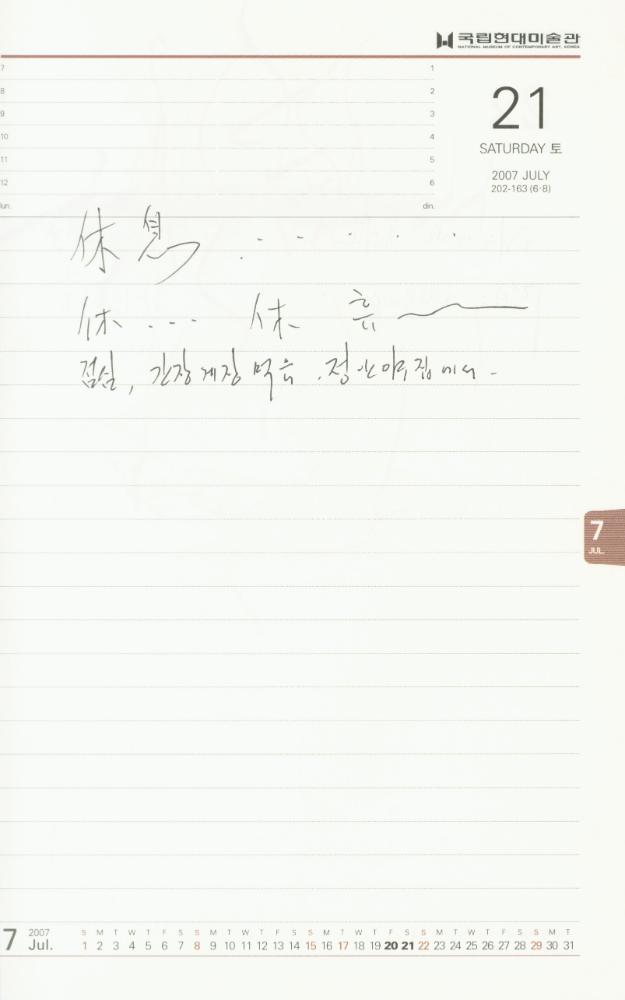 국립현대미술관
NATIONAL MUSEUM OF CONTEMPORARY ART, KOREA
7 1
8 2
9 3
10 4
11 5
12 6
lun. din.
21
SATURDAY 토
2007 JULY
202-163 (6·8)
休息 . - - . . .
休 . - - - 休 휴
점심, 간장게장 먹음. 집에서 -
7
JUL.
7 2007 Jul.
S M T W T F S S M T W T F S S M T W T F S S M T W T F S S M T
1 2 3 4 5 6 7 8 9 10 11 12 13 14 15 16 17 18 19 20 21 22 23 24 25 26 27 28 29 30 31